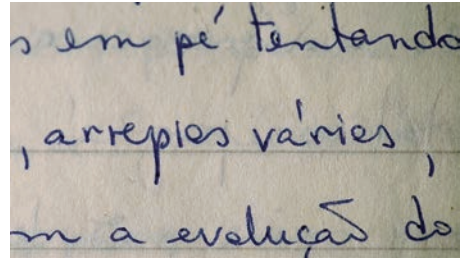 s em pé tentando
, arrepios vários,
m a evolução do